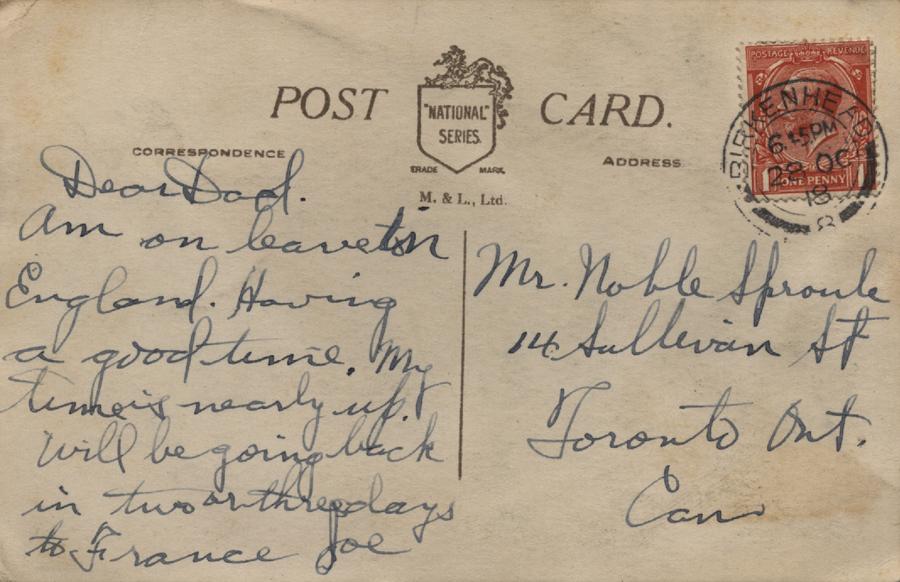 POST CARD.
"NATIONAL"
SERIES.
TRADE MARK.
M. & L., Ltd.
CORRESPONDENCE
ADDRESS
POSTAGE REVENUE
ONE PENNY
1 1
BIRKENHEAD
6.15PM
28 OC
18
8
Dear Dad.
Am on leave in
England. Having
a good time. My
time is nearly up.
Will be going back
in two or three days
to France Joe
Mr. Noble Sproule
14 Sullivan St
Toronto Ont.
Can